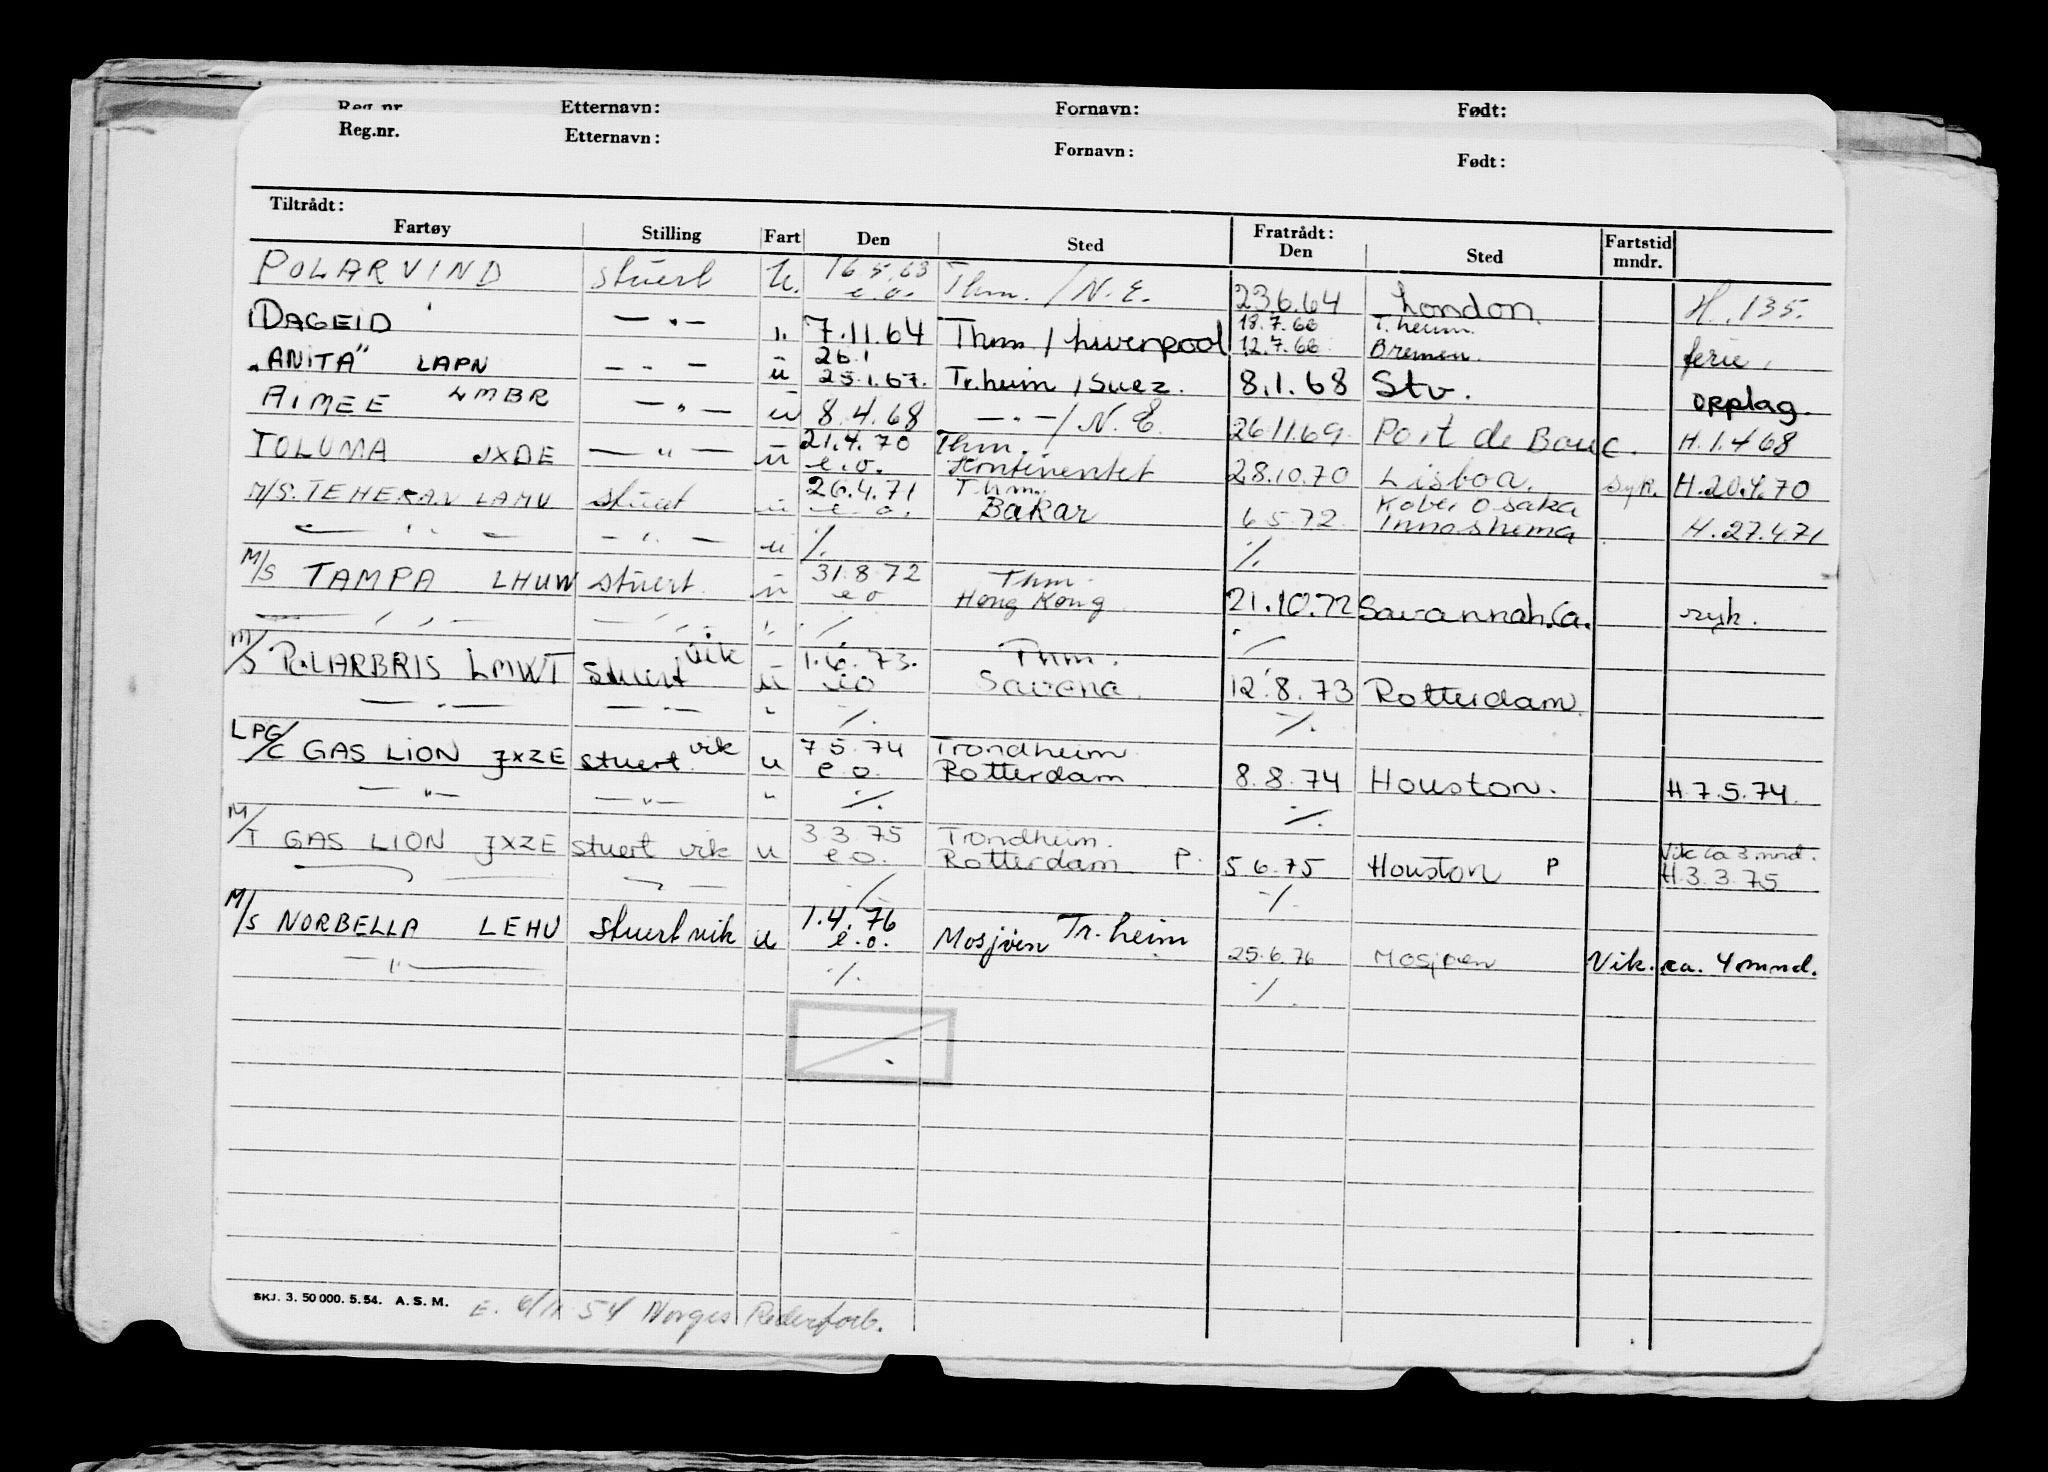 Reg.nr. Etternavn: Fornavn: Født:
Reg.nr. Etternavn: Fornavn: Født:
Tiltrådt: Fratrådt:
Fartøy Stilling Fart Den Sted Den Sted Fartstid mndr.
POLARVIND stuert U. 16.5.63 e.o. Thm. / N.E. 23.6.64 London H. 135.
DAGEID — " — " 7.11.64 Thm / Liverpool 18.7.66 T.heim. 12.7.66 Bremen. ferie.
"ANITA" LAPN — " — u 26.1 25.1.67. Tr.heim / Suez. 8.1.68 Stv. opplag.
AIMEE LMBR — " — u 8.4.68 — " — / N.E. 26.11.69. Port de Bouc. H.1.4 68
TOLUMA JXDE — " — u 21.4.70 e.o. Thm. Kontinentet 28.10.70 Lisboa. syk. H.20.4.70
M/S. TEHERAN LAMU stuert u 26.4.71 e.o. Thm. Bakar 6 5 72. Kobe, Osaka Innoshima H.27.4.71
— " — — " — u ./. ./.
M/S TAMPA LHUW stuert u 31.8.72 e o Thm. Hong Kong 21.10.72 Savannah.Ga. syk.
— " — — " — " ./. ./.
M/S POLARBRIS LMWT stuert vik u 1.6.73. e o Thm. Savona 12.8.73 Rotterdam.
— " — — " — " ./. ./.
LPG/C GAS LION JXZE stuert vik u 7 5.74 e o. Trondheim Rotterdam 8.8.74 Houston. H.7.5.74.
— " — — " — " ./. ./.
M/T GAS LION JXZE stuert vik u 3.3.75 e o. Trondheim. Rotterdam P. 5 6.75 Houston P Vik ca 3 mnd. H.3.3.75
— " — — " — ./. ./.
M/S NORBELLA LEHU stuert vik u 1.4.76 e.o. Mosjøen Tr.heim 25.6.76 Mosjøen Vik. ca. 4 mnd.
— " — ./. ./.
SKJ. 3. 50 000. 5.54. A. S. M. E. 6/IX 54 Norges Rederforb.